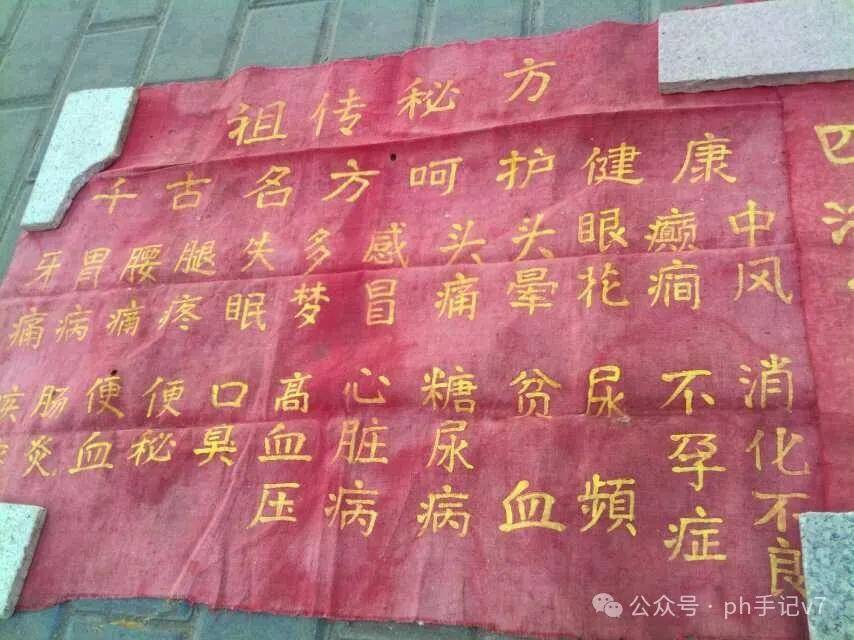 祖传秘方
千古名方呵护健康
牙痛
胃病
腰痛
腿疼
失眠
多梦
感冒
头痛
头晕
眼花
癫痫
中风
肠炎
便血
便秘
口臭
高血压
心脏病
糖尿病
贫血
尿頻
不孕症
消化不良
四
公众号·ph手记v7